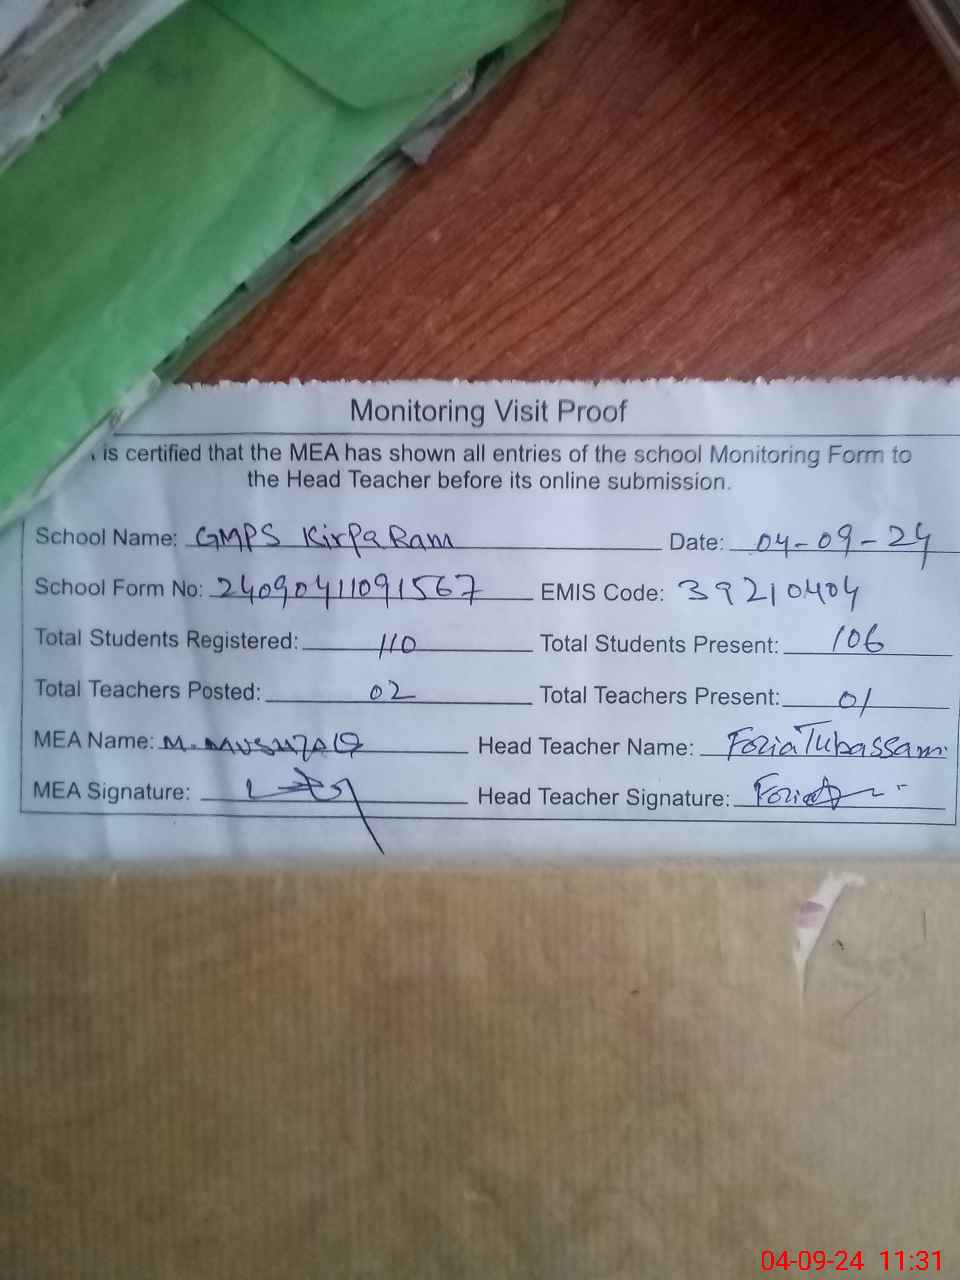 Monitoring Visit Proof
is certified that the MEA has shown all entries of the school Monitoring Form to
the Head Teacher before its online submission.
School Name: GMPS Kirpa Ram Date: 04-09-24
School Form No: 24090411091567 EMIS Code: 39210404
Total Students Registered: 110 Total Students Present: 106
Total Teachers Posted: 02 Total Teachers Present: 01
MEA Name: M. Head Teacher Name: Fozia Tubassam
MEA Signature: Head Teacher Signature: Fozia
04-09-24 11:31